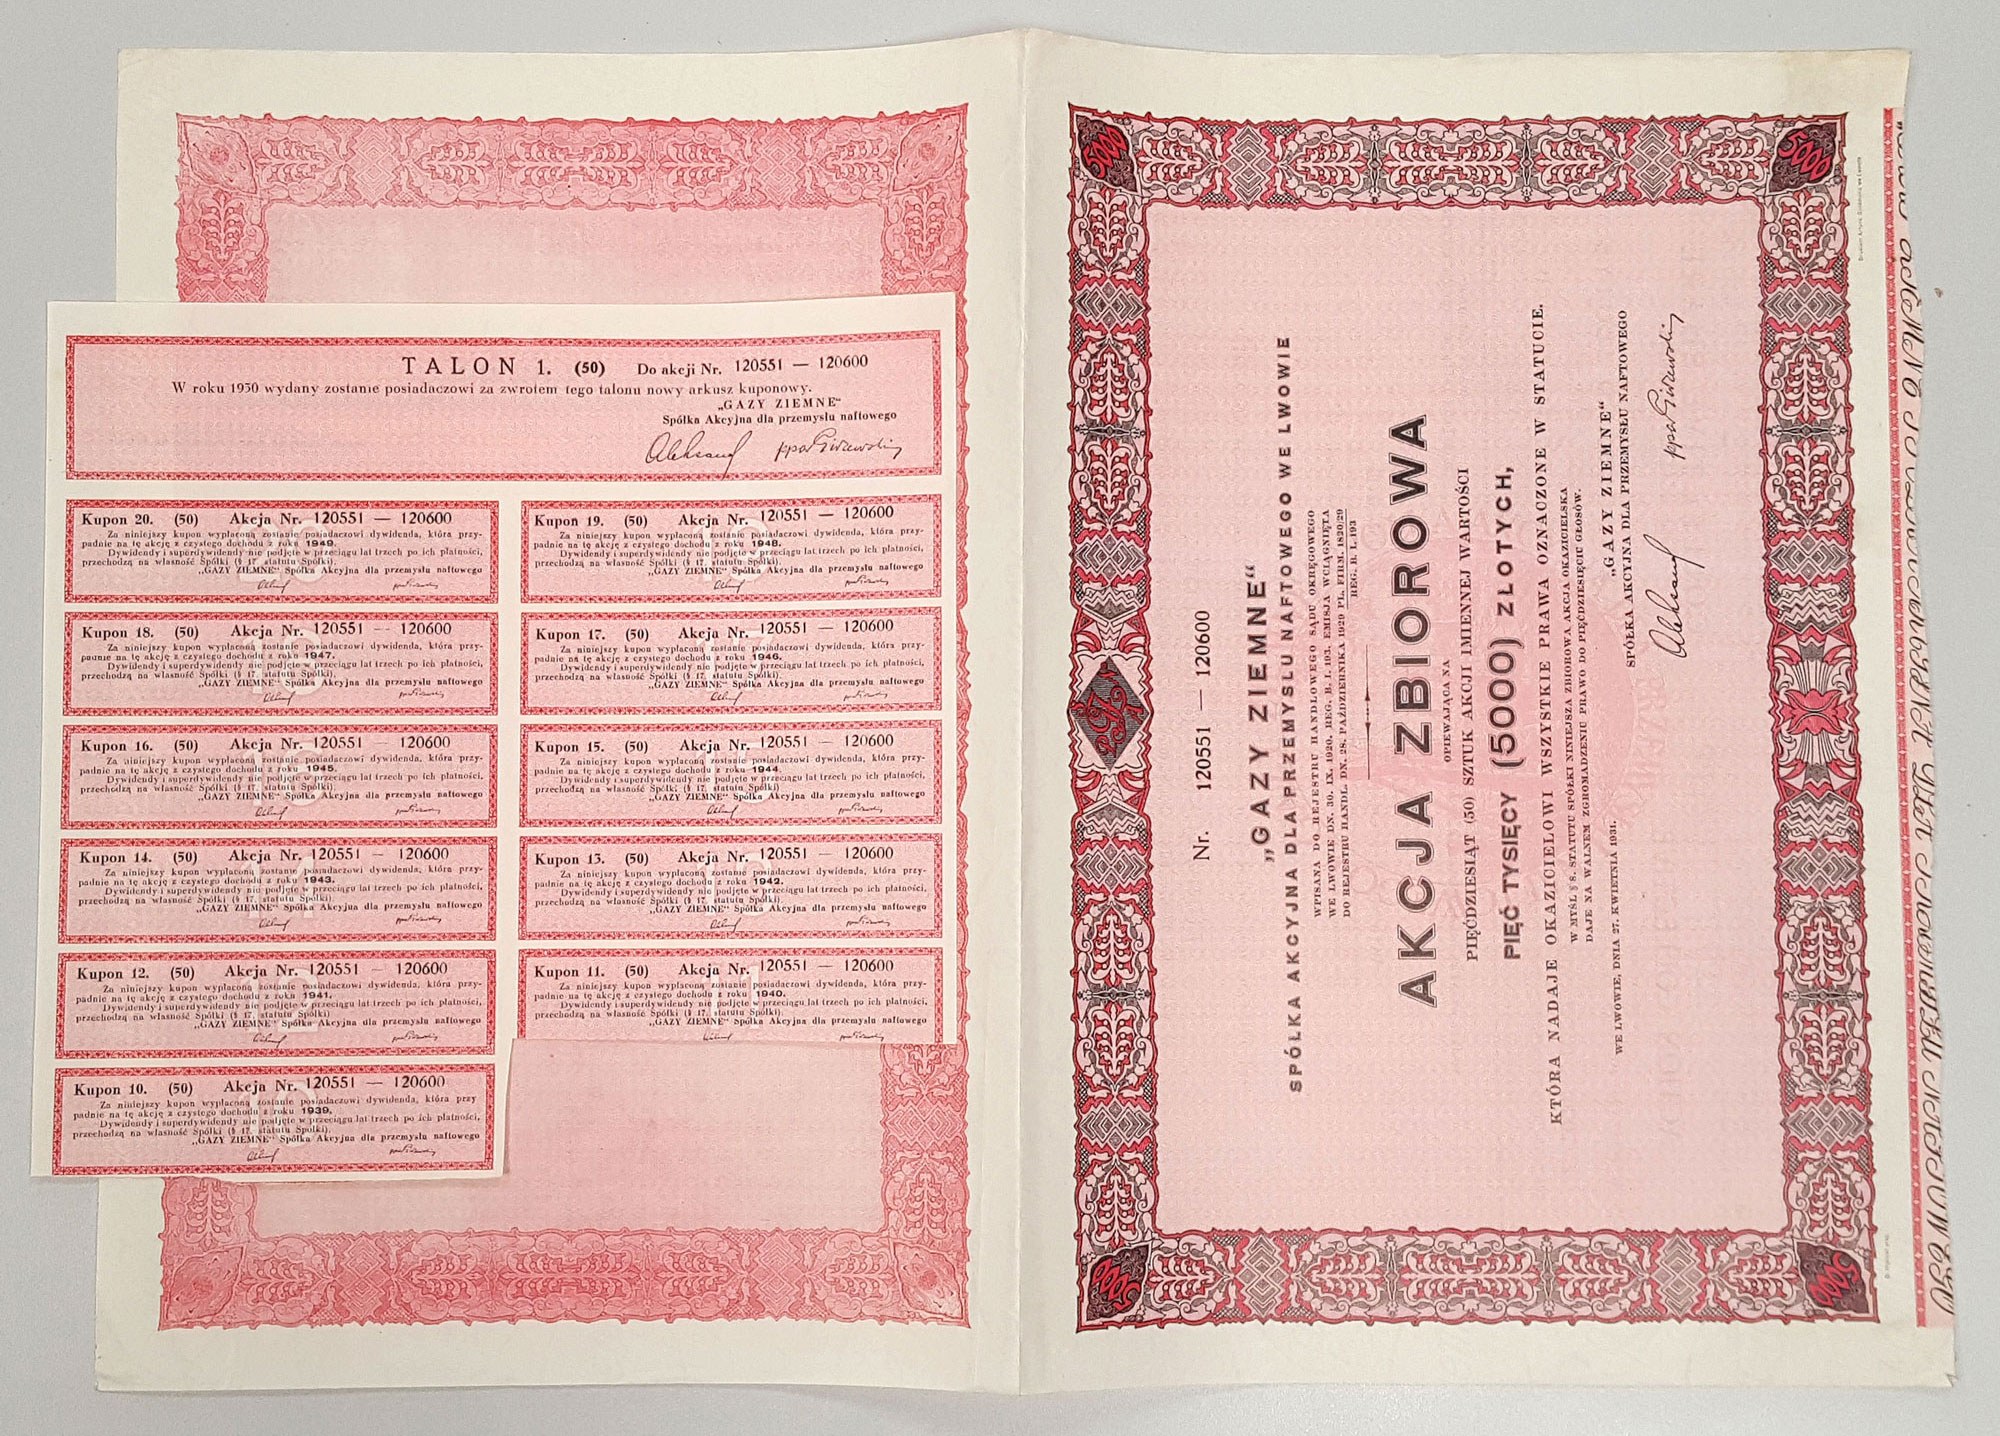 TALON 1. (50) Do akcji Nr. 120551 — 120600
W roku 1950 wydany zostanie posiadaczowi za zwrotem tego talonu nowy arkusz kuponowy.
„GAZY ZIEMNE“
Spółka Akcyjna dla przemysłu naftowego
Kupon 20. (50) Akcja Nr. 120551 — 120600
Za niniejszy kupon wypłaconą zostanie posiadaczowi dywidenda, która przy-
padnie na tę akcję z czystego dochodu z roku 1949.
Dywidendy i superdywidendy nie podjęte w przeciągu lat trzech po ich płatności,
przechodzą na własność Spółki (§ 17. statutu Spółki).
„GAZY ZIEMNE“ Spółka Akcyjna dla przemysłu naftowego
Kupon 19. (50) Akcja Nr. 120551 — 120600
Za niniejszy kupon wypłaconą zostanie posiadaczowi dywidenda, która przy-
padnie na tę akcję z czystego dochodu z roku 1948.
Dywidendy i superdywidendy nie podjęte w przeciągu lat trzech po ich płatności,
przechodzą na własność Spółki (§ 17. statutu Spółki).
„GAZY ZIEMNE“ Spółka Akcyjna dla przemysłu naftowego
Kupon 18. (50) Akcja Nr. 120551 — 120600
Za niniejszy kupon wypłaconą zostanie posiadaczowi dywidenda, która przy-
padnie na tę akcję z czystego dochodu z roku 1947.
Dywidendy i superdywidendy nie podjęte w przeciągu lat trzech po ich płatności,
przechodzą na własność Spółki (§ 17. statutu Spółki).
„GAZY ZIEMNE“ Spółka Akcyjna dla przemysłu naftowego
Kupon 17. (50) Akcja Nr. 120551 — 120600
Za niniejszy kupon wypłaconą zostanie posiadaczowi dywidenda, która przy-
padnie na tę akcję z czystego dochodu z roku 1946.
Dywidendy i superdywidendy nie podjęte w przeciągu lat trzech po ich płatności,
przechodzą na własność Spółki (§ 17. statutu Spółki).
„GAZY ZIEMNE“ Spółka Akcyjna dla przemysłu naftowego
Kupon 16. (50) Akcja Nr. 120551 — 120600
Za niniejszy kupon wypłaconą zostanie posiadaczowi dywidenda, która przy-
padnie na tę akcję z czystego dochodu z roku 1945.
Dywidendy i superdywidendy nie podjęte w przeciągu lat trzech po ich płatności,
przechodzą na własność Spółki (§ 17. statutu Spółki).
„GAZY ZIEMNE“ Spółka Akcyjna dla przemysłu naftowego
Kupon 15. (50) Akcja Nr. 120551 — 120600
Za niniejszy kupon wypłaconą zostanie posiadaczowi dywidenda, która przy-
padnie na tę akcję z czystego dochodu z roku 1944.
Dywidendy i superdywidendy nie podjęte w przeciągu lat trzech po ich płatności,
przechodzą na własność Spółki (§ 17. statutu Spółki).
„GAZY ZIEMNE“ Spółka Akcyjna dla przemysłu naftowego
Kupon 14. (50) Akcja Nr. 120551 — 120600
Za niniejszy kupon wypłaconą zostanie posiadaczowi dywidenda, która przy-
padnie na tę akcję z czystego dochodu z roku 1943.
Dywidendy i superdywidendy nie podjęte w przeciągu lat trzech po ich płatności,
przechodzą na własność Spółki (§ 17. statutu Spółki).
„GAZY ZIEMNE“ Spółka Akcyjna dla przemysłu naftowego
Kupon 13. (50) Akcja Nr. 120551 — 120600
Za niniejszy kupon wypłaconą zostanie posiadaczowi dywidenda, która przy-
padnie na tę akcję z czystego dochodu z roku 1942.
Dywidendy i superdywidendy nie podjęte w przeciągu lat trzech po ich płatności,
przechodzą na własność Spółki (§ 17. statutu Spółki).
„GAZY ZIEMNE“ Spółka Akcyjna dla przemysłu naftowego
Kupon 12. (50) Akcja Nr. 120551 — 120600
Za niniejszy kupon wypłaconą zostanie posiadaczowi dywidenda, która przy-
padnie na tę akcję z czystego dochodu z roku 1941.
Dywidendy i superdywidendy nie podjęte w przeciągu lat trzech po ich płatności,
przechodzą na własność Spółki (§ 17. statutu Spółki)
„GAZY ZIEMNE“ Spółka Akcyjna dla przemysłu naftowego
Kupon 11. (50) Akcja Nr. 120551 — 120600
Za niniejszy kupon wypłaconą zostanie posiadaczowi dywidenda, która przy-
padnie na tę akcję z czystego dochodu z roku 1940.
Dywidendy i superdywidendy nie podjęte w przeciągu lat trzech po ich płatności,
przechodzą na własność Spółki (§ 17. statutu Spółki).
„GAZY ZIEMNE“ Spółka Akcyjna dla przemysłu naftowego
Kupon 10. (50) Akcja Nr. 120551 — 120600
Za niniejszy kupon wypłaconą zostanie posiadaczowi dywidenda, która przy
padnie na tę akcję z czystego dochodu z roku 1939.
Dywidendy i superdywidendy nie podjęte w przeciągu lat trzech po ich płatności,
przechodzą na własność Spółki (§ 17. statutu Spółki).
„GAZY ZIEMNE“ Spółka Akcyjna dla przemysłu naftowego
5000
5000
5000
5000
Nr. 120551 — 120600
„GAZY ZIEMNE“
SPÓŁKA AKCYJNA DLA PRZEMYSŁU NAFTOWEGO WE LWOWIE
WPISANA DO REJESTRU HANDLOWEGO SĄDU OKRĘGOWEGO
WE LWOWIE DN. 30. IX. 1920. REG. B. I. 193. EMISJA WCIĄGNIĘTA
DO REJESTRU HANDL. DN. 28. PAŹDZIERNIKA 1929 PL. FIRM. 1820/29
REG. B. I. 193
AKCJA ZBIOROWA
OPIEWAJĄCA NA
PIĘĆDZIESIĄT (50) SZTUK AKCJI IMIENNEJ WARTOŚCI
PIĘĆ TYSIĘCY (5000) ZŁOTYCH,
KTÓRA NADAJE OKAZICIELOWI WSZYSTKIE PRAWA OZNACZONE W STATUCIE.
W MYŚL § 8. STATUTU SPÓŁKI NINIEJSZA ZBIOROWA AKCJA OKAZICIELSKA
DAJE NA WALNEM ZGROMADZENIU PRAWO DO PIĘĆDZIESIĘCIU GŁOSÓW.
WE LWOWIE, DNIA 27. KWIETNIA 1931.
„GAZY ZIEMNE“
SPÓŁKA AKCYJNA DLA PRZEMYSŁU NAFTOWEGO